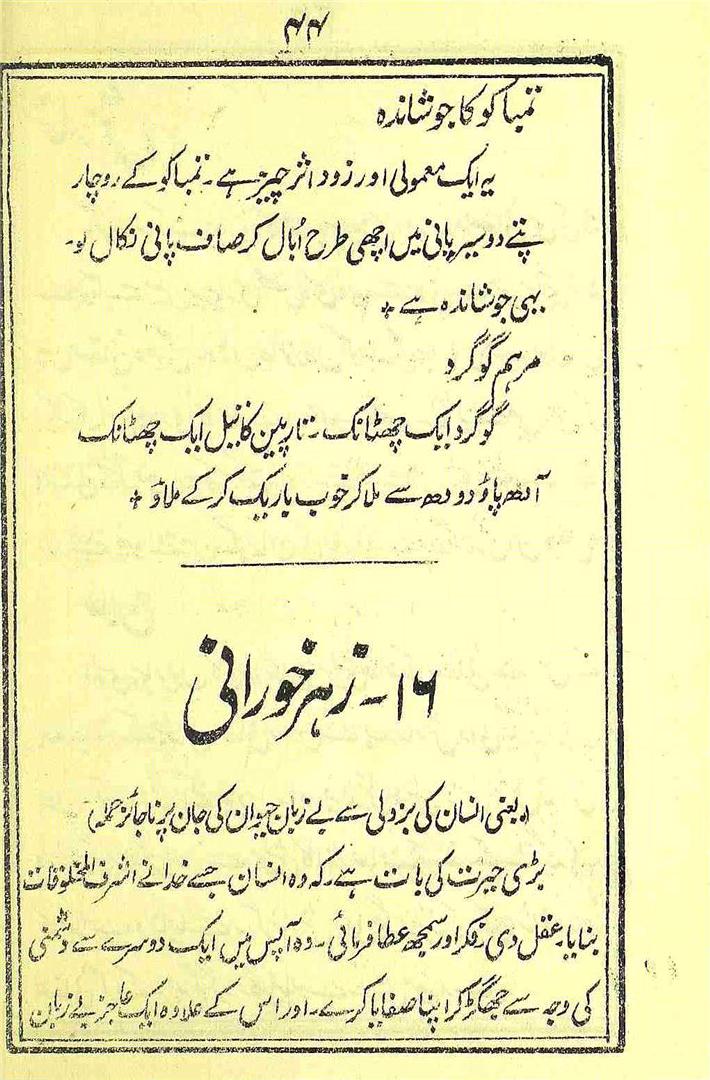 ۴۴
تمباکو کا جوشاندہ
یہ ایک معمولی اور زود اثر چیز ہے۔ تمباکو کے دوچار
پتے دو سیر پانی میں اچھی طرح اُبال کر صاف پانی نکال لو۔
یہی جوشاندہ ہے +
مرہم گوگرد
گوگرد ایک چھٹانک۔ تارپین کا تیل ایک چھٹانک
آدھ پاؤ دودھ سے ملا کر خوب باریک کر کے ملاؤ +
۱۶۔ زہر خورانی
(یعنی انسان کی بزدلی سے بے زبان حیوان کی جان پر ناجائز حملہ)
بڑی حیرت کی بات ہے۔ کہ وہ انسان جسے خدا نے اشرف المخلوقات
بنایا۔ عقل دی۔ فکر اور سمجھ عطا فرمائی۔ وہ آپس میں ایک دوسرے سے دشمنی
کی وجہ سے جھگڑ کر اپنا صفایا کرے۔ اور اس کے علاوہ ایک عاجز بے زبان